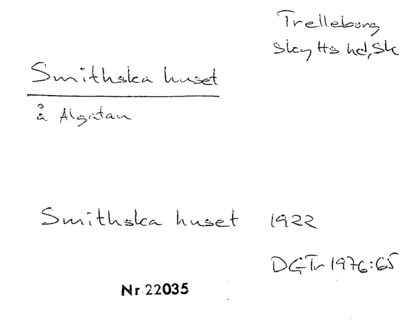 Trelleborg
Skytts hd, Sk
Smithska huset
å Algatan
Smithska huset 1922
DGTr 1976:65
Nr 22035